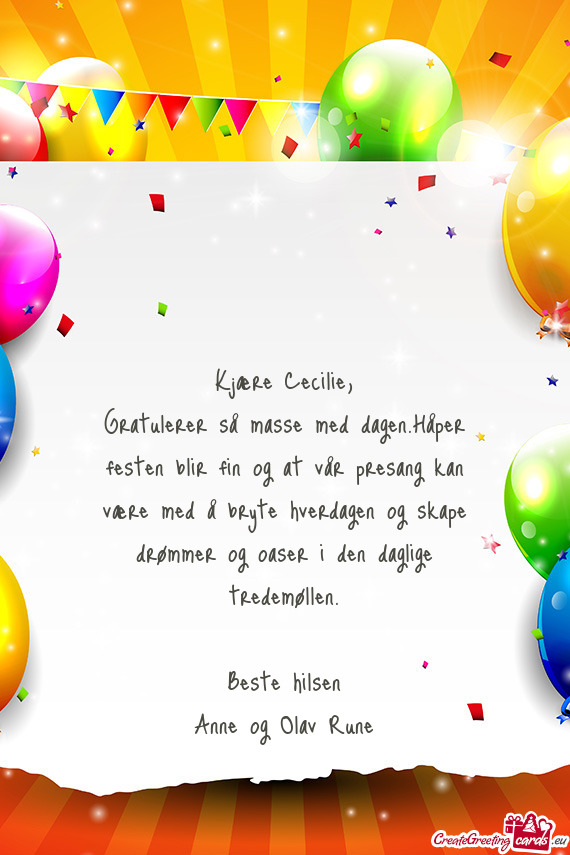 Kjære Cecilie,
Gratulerer så masse med dagen.Håper
festen blir fin og at vår presang kan
være med å bryte hverdagen og skape
drømmer og oaser i den daglige
tredemøllen.
Beste hilsen
Anne og Olav Rune
CreateGreeting cards .eu